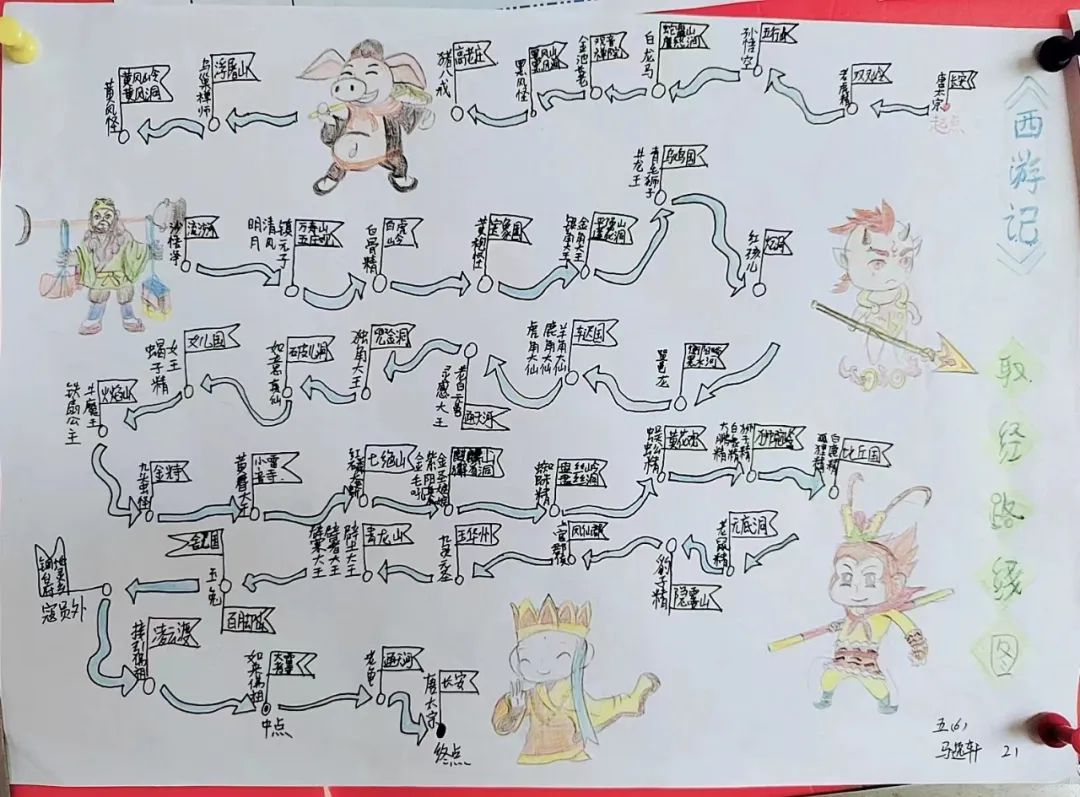 《西游记》
取经路线图
长安
唐太宗
起点
双叉岭
老虎精
五行山
孙悟空
蛇盘山
鹰愁涧
白龙马
观音
禅院
金池长老
黑风山
黑风洞
黑风怪
高老庄
猪八戒
浮屠山
乌巢禅师
黄风岭
黄风洞
黄风怪
流沙河
沙悟净
万寿山
五庄观
镇元子
清风
明月
白虎岭
白骨精
宝象国
黄袍怪
平顶山
莲花洞
金角大王
银角大王
乌鸡国
青毛狮子
井龙王
火云洞
红孩儿
衡阳峪
黑水河
黑鼍龙
车迟国
羊角大仙
鹿角大仙
虎角大仙
通天河
老白元鼋
灵感大王
独角大王
破儿洞
如意真仙
女儿国
女王
蝎子精
火焰山
牛魔王
铁扇公主
金特
九头怪
小雷音寺
黄眉大王
七绝山
红鳞大蟒
麒麟山
獬豸洞
金圣娘娘
紫阳真人
金毛吼
盘丝岭
盘丝洞
蜘蛛精
黄花观
蜈蚣精
狮驼岭
狮子精
白象精
大鹏精
比丘国
白鹿精
狐狸精
无底洞
老鼠精
隐雾山
豹子精
凤仙郡
官郡侯
玉华州
九灵元圣
青龙山
辟尘大王
辟暑大王
辟寒大王
舍卫国
玉兔
百脚山
寇员外
凌云渡
接引佛祖
大雷音寺
如来佛祖
中点
通天河
老鱼
长安
唐太宗
终点
五(6)
马逸轩 21